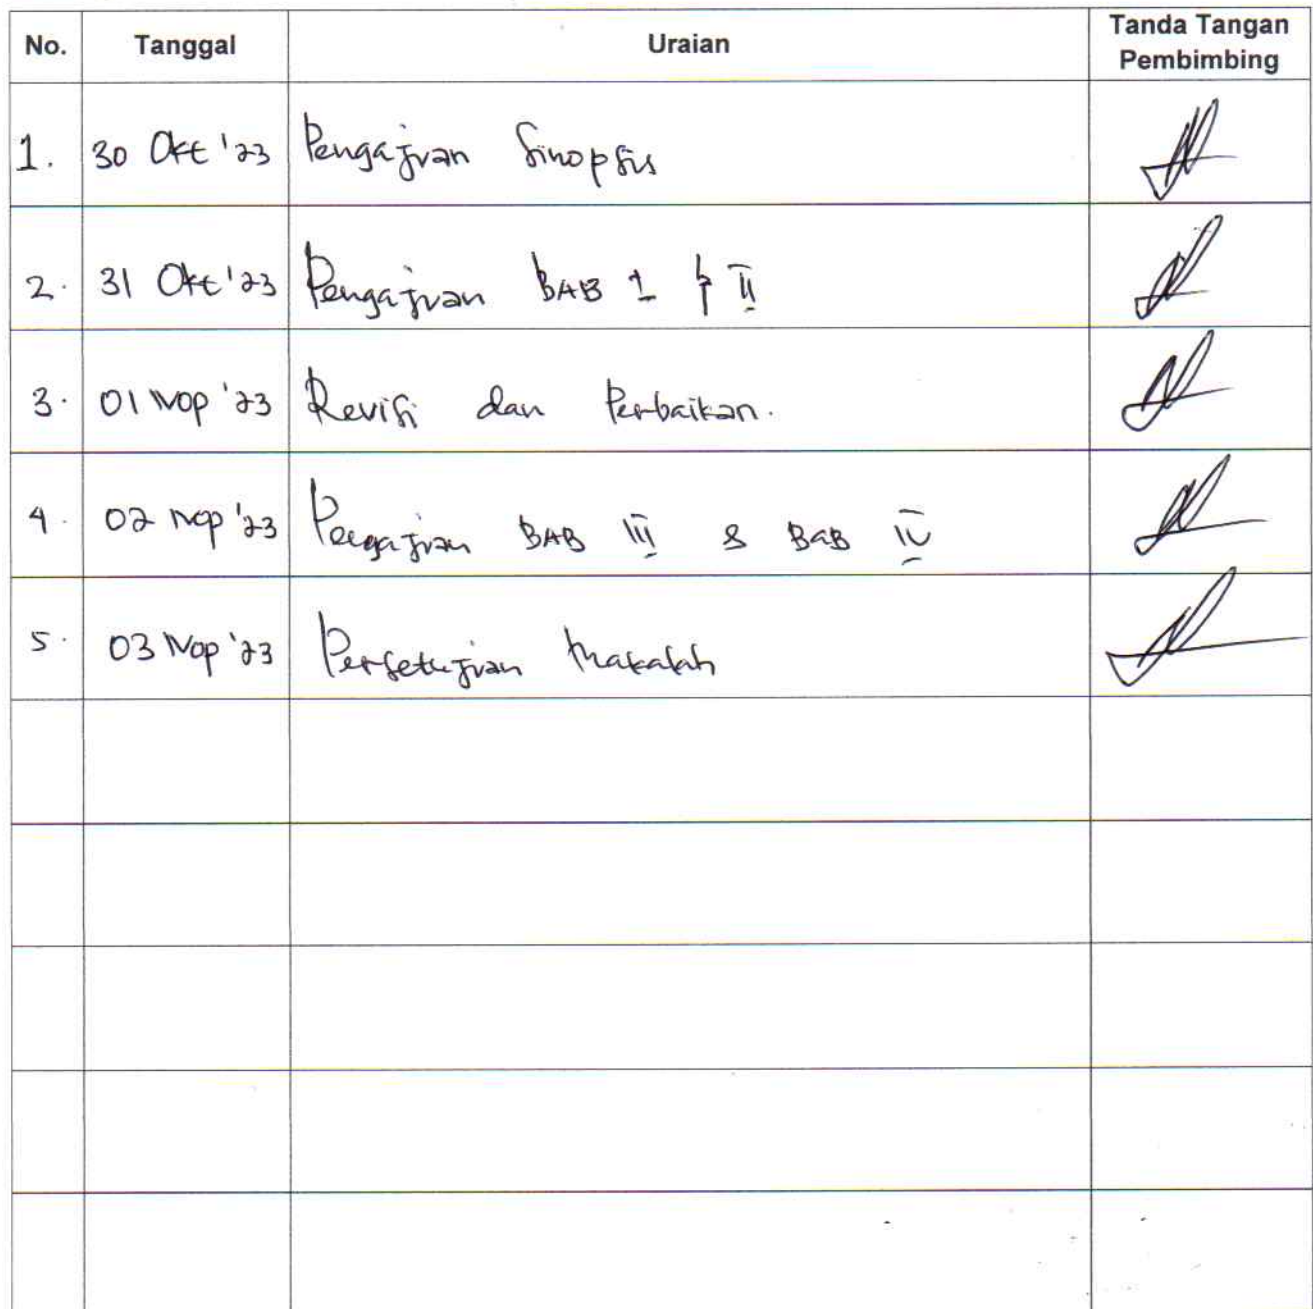 No. Tanggal Uraian Tanda Tangan Pembimbing
1. 30 Okt '23 Pengajuan Sinopsis
2. 31 Okt '23 Pengajuan BAB I & II
3. 01 Nop '23 Revisi dan Perbaikan.
4. 02 Nop '23 Pengajuan BAB III & BAB IV
5. 03 Nop '23 Persetujuan Makalah